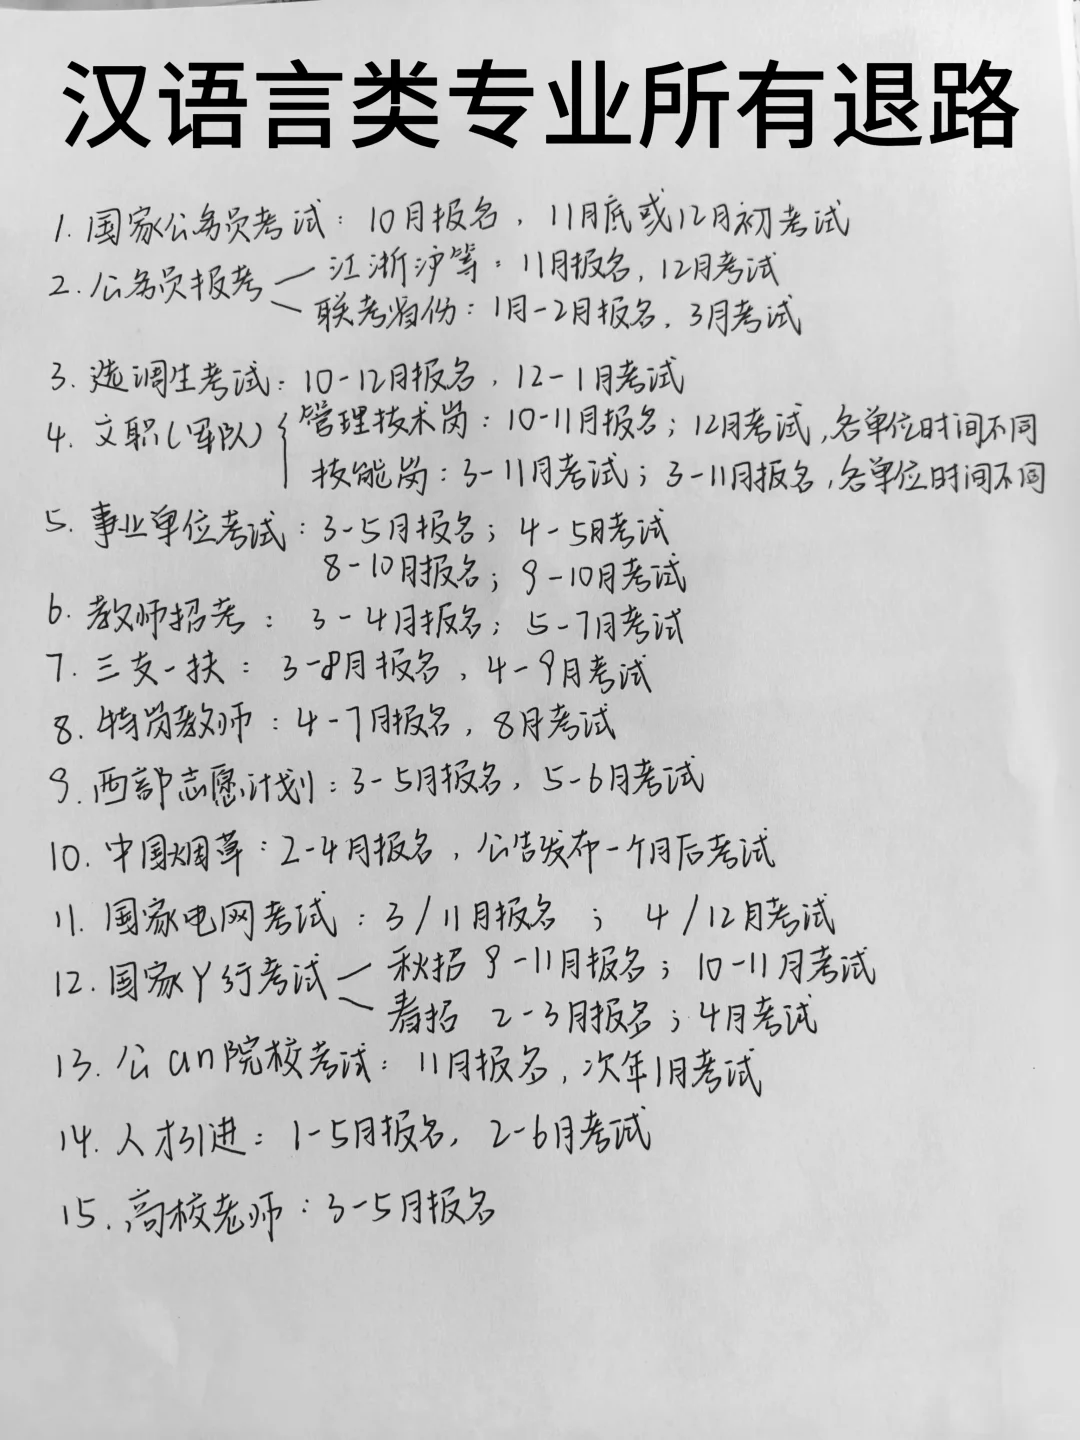 汉语言类专业所有退路
1. 国家公务员考试：10月报名，11月底或12月初考试
2. 公务员报考
江浙沪等：11月报名，12月考试
联考省份：1月-2月报名，3月考试
3. 选调生考试：10-12月报名，12-1月考试
4. 文职(军队)
管理技术岗：10-11月报名；12月考试，各单位时间不同
技能岗：3-11月考试；3-11月报名，各单位时间不同
5. 事业单位考试：3-5月报名；4-5月考试
8-10月报名；9-10月考试
6. 教师招考：3-4月报名；5-7月考试
7. 三支一扶：3-8月报名，4-9月考试
8. 特岗教师：4-7月报名，8月考试
9. 西部志愿计划：3-5月报名，5-6月考试
10. 中国烟草：2-4月报名，公告发布一个月后考试
11. 国家电网考试：3/11月报名；4/12月考试
12. 国家丫行考试
秋招 9-11月报名；10-11月考试
春招 2-3月报名；4月考试
13. 公an院校考试：11月报名，次年1月考试
14. 人才引进：1-5月报名，2-6月考试
15. 高校老师：3-5月报名